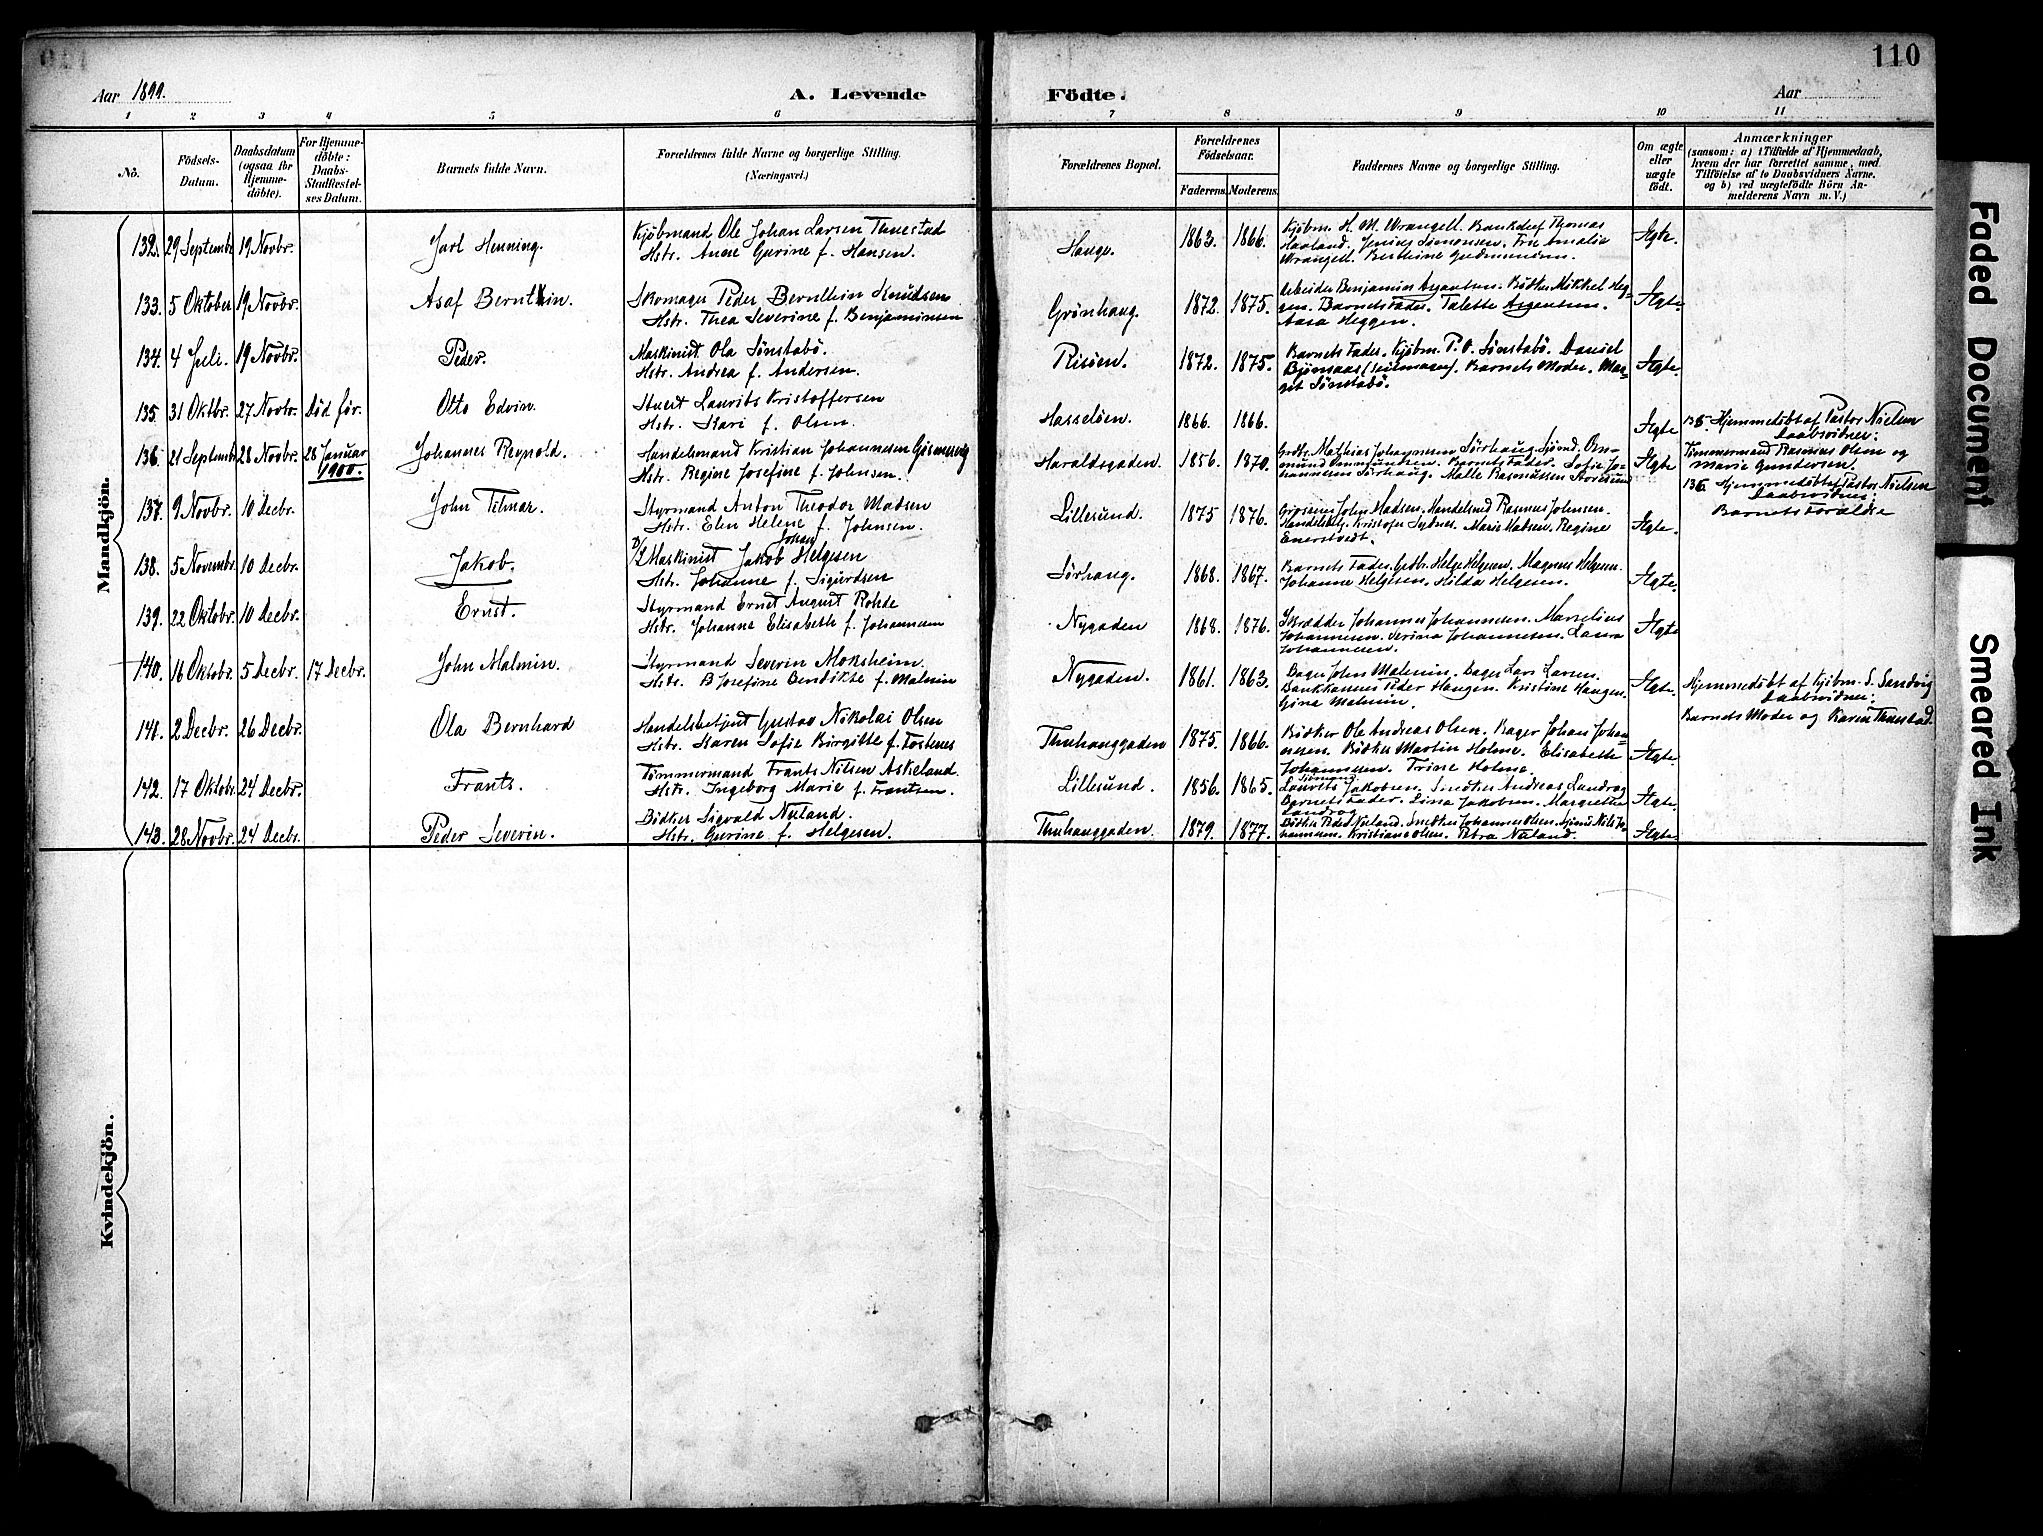 110
Aar 1899.
A. Levende Födte.
Aar
1 2 3 4 5 6 7 8 9 10 11
No.
Födsels-Datum.
Daabsdatum (ogsaa for Hjemmedöbte).
For Hjemmedöbte: Daabs-Stadfæstelses Datum.
Barnets fulde Navn.
Forældrenes fulde Navne og borgerlige Stilling.
(Næringsvei.)
Forældrenes Bopæl.
Forældrenes Födselsaar.
Faderens. Moderens.
Faddernes Navne og borgerlige Stilling.
Om ægte eller uægte födt.
Anmærkninger
(saasom: a) i Tilfælde af Hjemmedaab, hvem der har forrettet samme, med Tilföielse af to Daabsvidners Navne. og b) ved uægtefödte Börn Anmelderens Navn m. V.)
Mandkjön.
132. 29 Septembr 19 Novbr. Jarl Henning.
Kjøbmand Ole Johan Larsen Thuestad
Hstr. Anne Gurine f. Hansen.
Hauge. 1863. 1866.
Kjøbm. H. M. Wrangell. Bankchef Thomas
Haaland. Simonsen. Fru Amalie
Wrangell. Berthine Gudmundsen.
Ægte.
133. 5 Oktober 19 Novbr. Asaf Bernthin.
Skomager Peder Bernthin Knudsen
Hstr. Thea Severine f. Benjaminsen
Grønhaug. 1872. 1875.
Arbeider Benjamin Bødker Mikkel Heg-
gen. Barnets Fader. Talette
Aasa Heggen.
Ægte.
134. 4 Juli. 19 Novbr. Peder.
Maskinist Ola Sönstabö.
Hstr. Andrea f. Andersen.
Risöen. 1872. 1875.
Barnets Fader. Kjøbm. P. O. Sønstabö. Daniel
Barnets Moder. Mar-
get Sönstabö.
Ægte.
135. 31 Oktbr. 27 Novbr. Död før. Otto Edvin.
Stuert Laurits Kristoffersen
Hstr. Kari f. Olsen.
Hasselöen. 1866. 1866.
Ægte
135. Hjemmedöbt af Pastor Nielsen
Daabsvidner:
Tömmermand Rasmus Olsen og
Marie Gundersen.
136. 21 Septembr 28 Novbr. 28 Januar 1900. Johannes Reynold.
Handelsmand Kristian Johannesen
Hstr. Regine Josefine f. Johnsen.
Haraldsgaden. 1856. 1870.
Grdbr. Mathias Johannesen Sörhaug. Sömd. Om-
mund Ommundsen. Barnets Fader. Sofie Jo-
hannesen Sörhaug. Malle Rasmussen Storesund
Ægte
136. Hjemmedöbt af Pastor Nielsen
Daabsvidner:
Barnets Forældre
137. 9 Novbr. 10 Decbr. John Tilmar.
Styrmand Anton Theodor Madsen
Hstr. Elen Helene f. Johnsen.
Lillesund. 1875 1876.
John Madsen. Handelsmd Rasmus Johnsen.
Kristofer Sydnes. Marie Madsen. Regine
Ægte.
138. 5 Novembr. 10 Decbr. Jakob.
Maskinist Jakob Johan Helgesen
Hstr. Johanne f. Sigurdsen
Sörhaug. 1868. 1867.
Barnets Fader. Grdbr. Helge Helgesen. Magnus Helgesen.
Johanne Helgesen. Hilda Helgesen.
Ægte.
139. 22 Oktobr. 10 Decbr. Ernst.
Styrmand Ernst August Rohde
Hstr. Johanne Elisabeth f. Johannesen
Nygaden 1868. 1876.
Skrædder Johannes Johannesen. Marselius
Johannesen. Serina Johannesen. Laura
Johannesen.
Ægte
140. 16 Oktobr. 5 Decbr. 17 Decbr. John Malmin.
Styrmand Severin Moksheim.
Hstr. B Josefine Bendikte f. Malmin
Nygaden. 1861. 1863.
Bager John Malmin. Bager Lars Larsen.
Peder Haugen. Kristine Haugen.
Gina Malmin.
Ægte.
Hjemmedöbt af Kjöbm. S. Sandvig
Daabsvidner:
Barnets Moder og Karen Thuestad.
141. 2 Decbr. 26 Decbr. Ola Bernhard
Handelsbetjent Gustav Nikolai Olsen
Hstr. Karen Sofie Birgitte f. Tostenes
Thuhauggaden 1875. 1866.
Bödker Ole Andreas Olsen. Bager Johan Johan-
nesen. Bödker Martin Holme. Elisabeth
Johannesen. Trine Holme.
Ægte.
142. 17 Oktobr. 24 Decbr. Frants.
Tömmermand Frants Nilsen Askeland.
Hstr. Ingeborg Marie f. Frantsen.
Lillesund. 1856. 1865.
Laurits Jakobsen. Snedker Andreas Landrog
Barnets Fader. Lina Jakobsen. Margrethe
Landrog
Ægte.
143. 28 Novbr. 24 Decbr. Peder Severin.
Bödker Sigvald Nyland.
Hstr. Gurine f. Helgesen.
Thuhauggaden. 1879. 1877.
Bödker Peder Nyland. Snedker Johannes Olsen. Nils Jo-
hannesen. Kristiane Olsen. Petra Nyland.
Ægte
Kvindekjön.
Faded Document
Smeared Ink